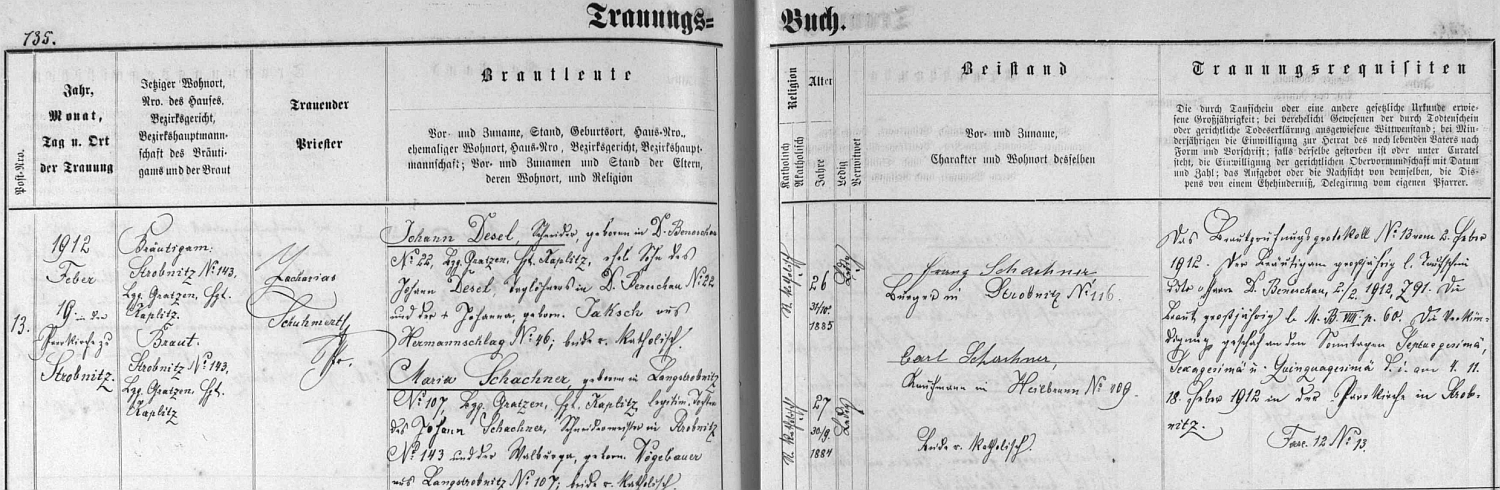 135.
Trauungs=
Buch.
Post-Nro.
Jahr,
Monat,
Tag u. Ort
der Trauung
Jetziger Wohnort,
Nro. des Hauses,
Bezirksgericht,
Bezirkshauptmann-
schaft des Bräuti-
gams und der Braut
Trauender
Priester
Brautleute
Vor- und Zuname, Stand, Geburtsort, Haus-Nro.,
ehemaliger Wohnort, Haus-Nro, Bezirksgericht, Bezirkshaupt-
mannschaft; Vor- und Zunamen und Stand der Eltern,
deren Wohnort, und Religion
Religion
Katholisch
Akatholisch
Alter
Jahre
Ledig
Verwitwet
Beistand
Vor- und Zuname,
Charakter und Wohnort desselben
Trauungsrequisiten
Die durch Taufschein oder eine andere gesetzliche Urkunde erwie-
sene Großjährigkeit; bei verehelicht Gewesenen der durch Todenschein
oder gerichtliche Todeserklärung ausgewiesene Witwenstand; bei Min-
derjährigen die Einwilligung zur Heirat des noch lebenden Vaters nach
Form und Vorschrift; falls derselbe gestorben ist oder unter Curatel
steht, die Einwilligung der gerichtlichen Obervormundschaft mit Datum
und Zahl; das Aufgebot oder die Nachsicht von demselben, die Dis-
pens von einem Ehehinderniß, Delegirung vom eigenen Pfarrer.
13.
1912
Feber
19. in der
Pfarrkirche zu
Strobnitz.
Bräutigam:
Strobnitz № 143,
Bzg. Gratzen, Hpt.
Kaplitz.
Braut.
Strobnitz № 143,
Bzg. Gratzen, Hpt.
Kaplitz
Zacharias
Schuhmertl
Pfr.
Johann Desel, Schneider, geboren in D. Beneschau
№ 22, Bzg. Gratzen, Hpt. Kaplitz, ehel. Sohn des
Johann Desel, in D. Beneschau № 22
und der † Johanna, geborn. Jaksch aus
Hermannschlag № 46; beide r. katholisch.
Maria Schachner, geboren in Langstrobnitz
№ 107, Bzg. Gratzen, Hpt. Kaplitz, legitim. Tochter
des Johann Schachner, Schneidermeister in Strobnitz
№ 143 und der Walburga, geborn. Vögebauer
aus Langstrobnitz № 107; beide r. katholisch.
R. Katholisch
26
31/10
1885
Ledig
R. Katholisch
27
30/9
1884
Ledig
Franz Schachner
Bürger in Strobnitz № 116.
Carl Schachner,
Kaufmann in Heilbrunn № 109.
Beide r. katholisch.
Das Brautprüfungsprotokoll № 13 vom 2. Feber
1912. Der Bräutigam großjährig l. Taufschein
dto Pfarre D. Beneschau, 2/2. 1912, Z 91. Die
Braut großjährig l. M. B. VIII. p. 60. Die Verkün-
digung geschah an den Sonntagen Septuagesimä,
Sexagesimä u. Quinquagesimä d. i. am 4. 11.
18. Feber 1912 in der Pfarrkirche in Strob-
nitz.
Fasc. 12 № 13.